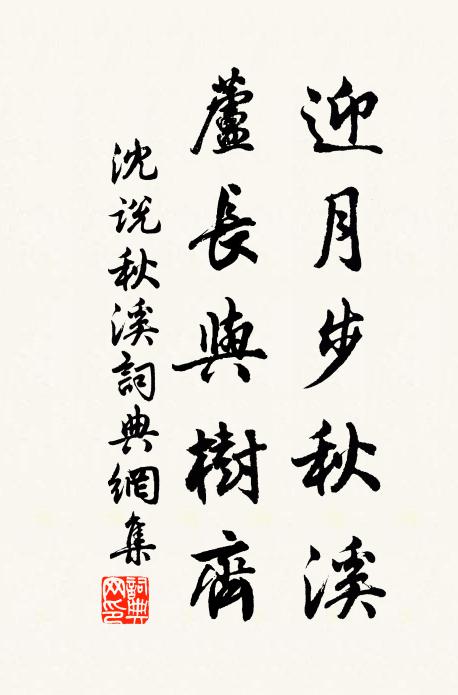 迎月步秋溪
蘆長與樹齊
沈說秋溪詞典網集
詞典網印